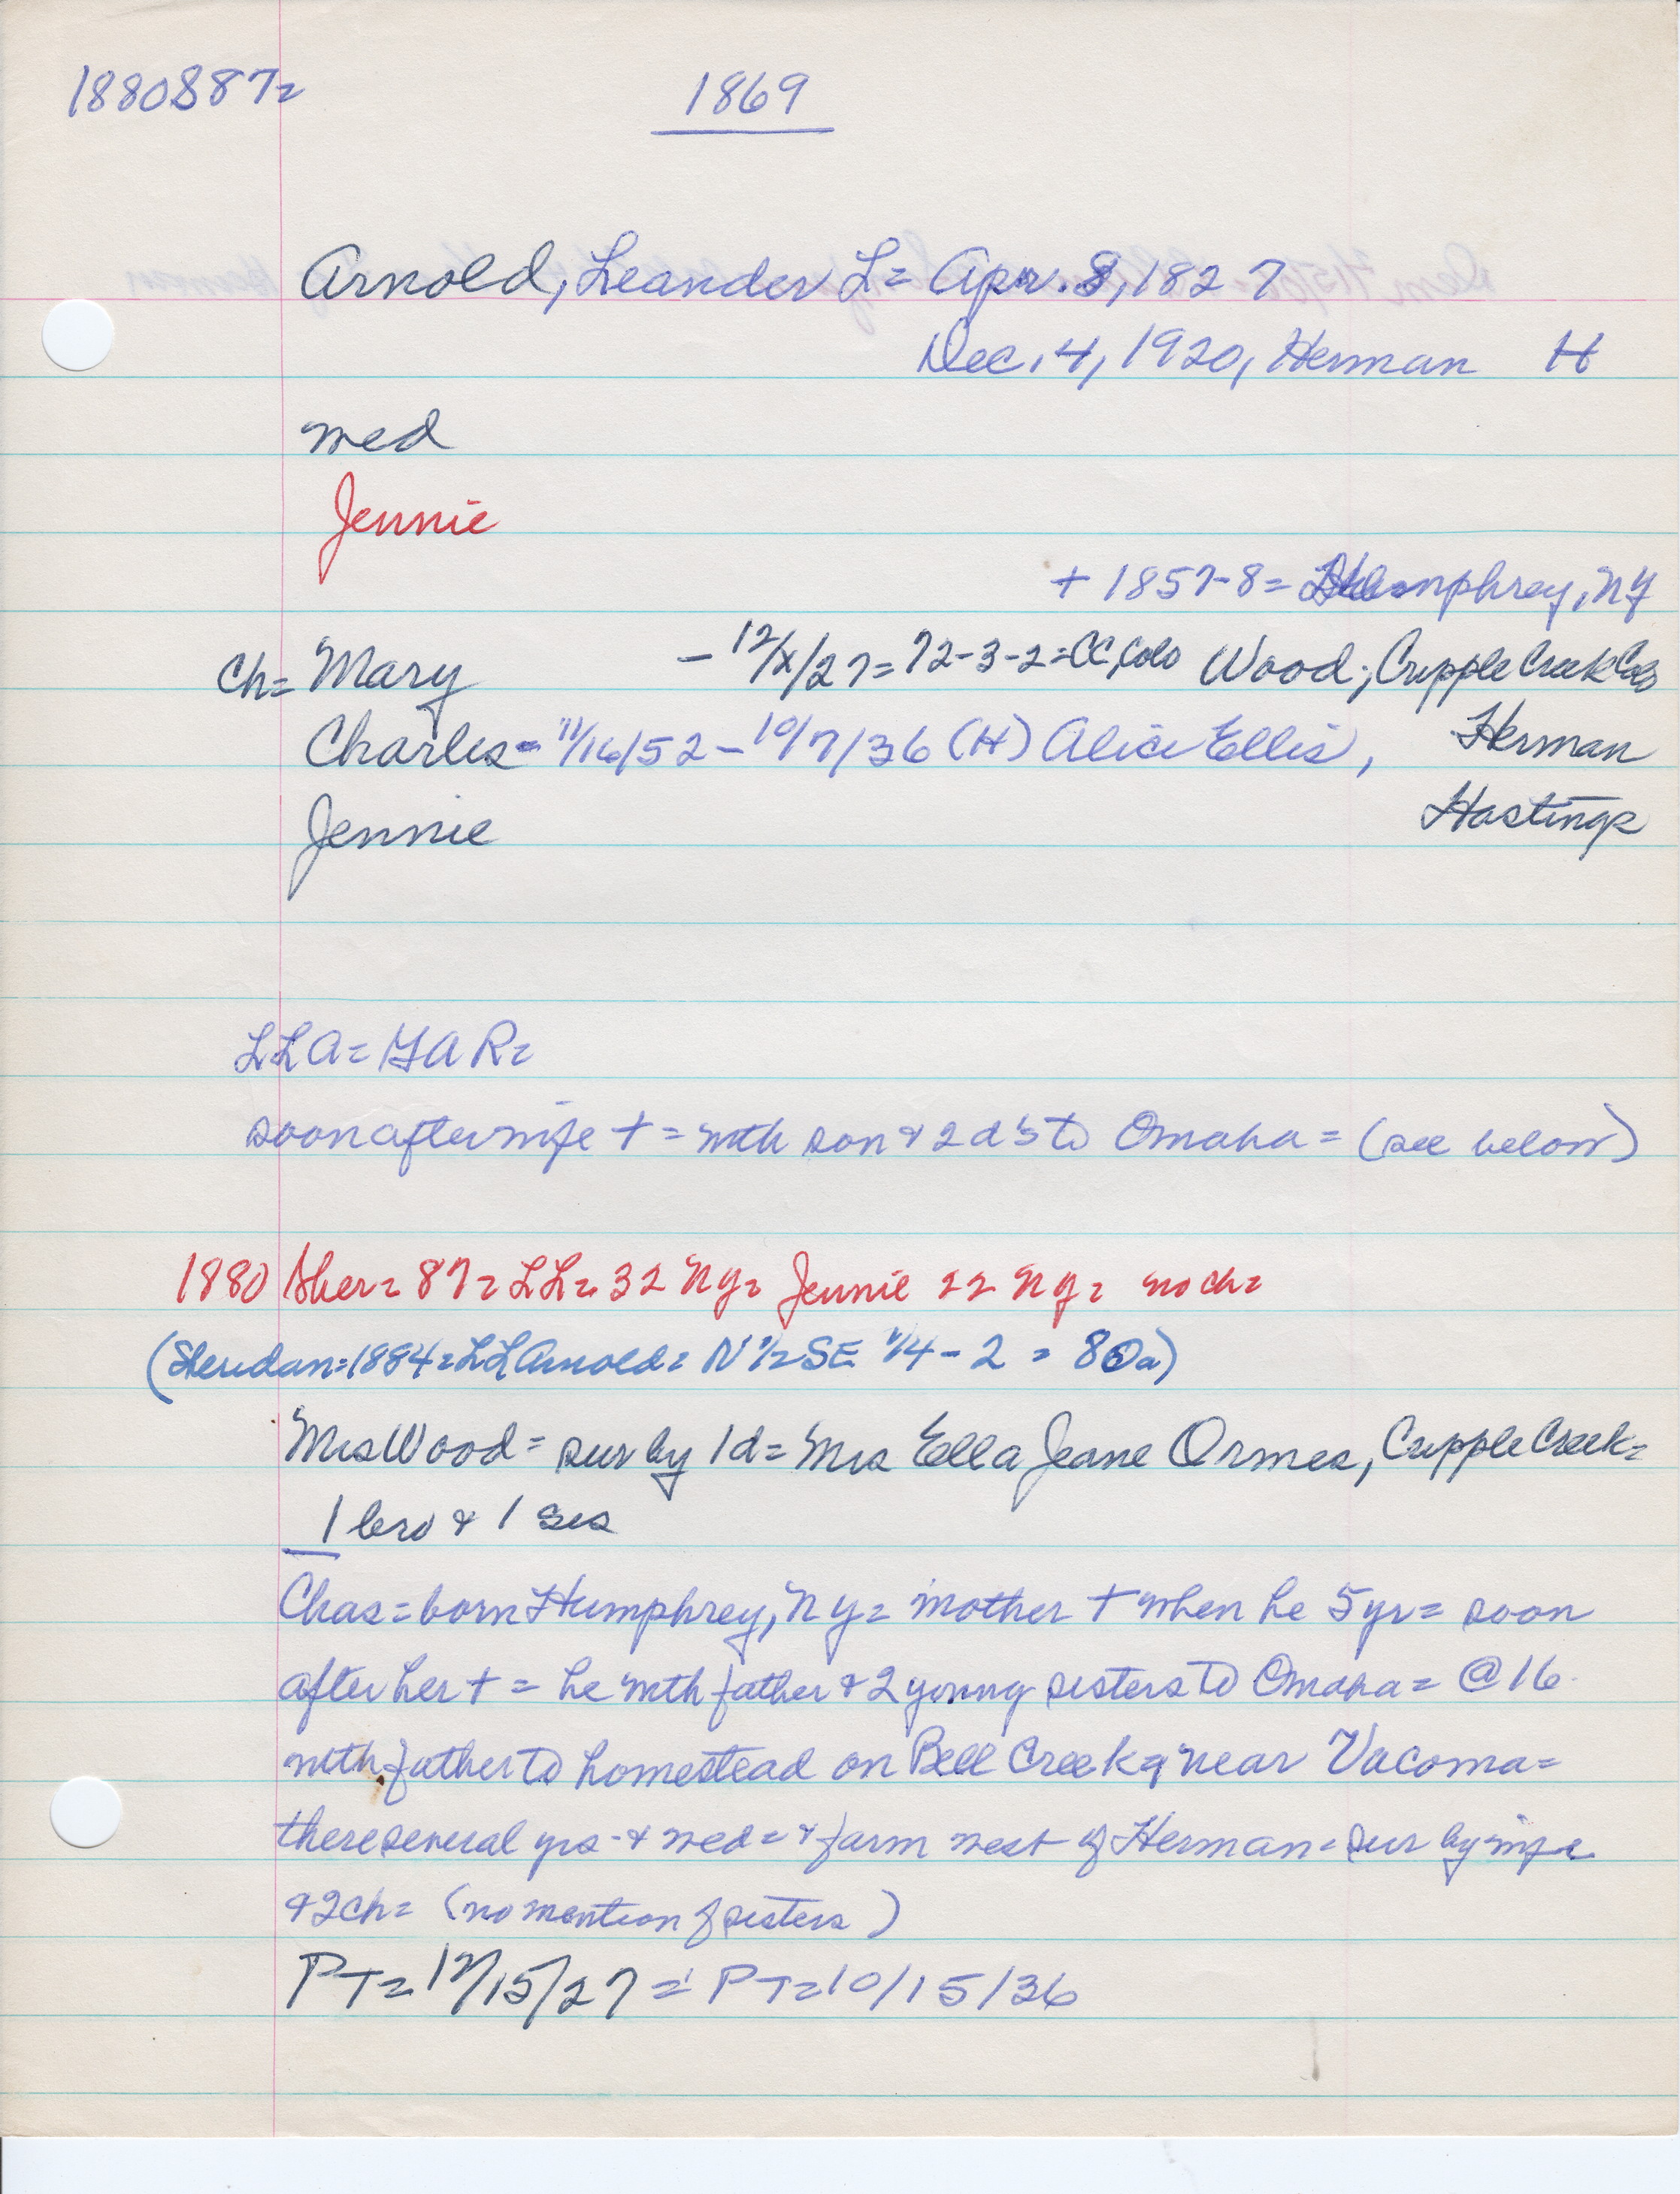 1880S87=
1869
Arnold, Leander L= Apr. 8, 1827
Dec. 4, 1920, Herman H
wed
Jennie
+ 1857-8= Humphrey, NY
Ch= Mary - 12/x/27= 72-3-2=CC, Colo Wood; Cripple Creek Colo
Charles= 11/16/52 - 10/7/36 (H) Alice Ellis, Herman
Jennie Hastings
LLA= GAR=
soon after wife + = with son & 2 d's to Omaha = (see below)
1880 Sher= 87= LL= 32 NY= Jennie 22 NY= no ch=
(Sheridan=1884=LL Arnold= N 1/2 SE 1/4 - 2 = 80a)
Mrs Wood = sur by 1d= Mrs Ella Jeane Ormes, Cripple Creek=
1 bro & 1 sis
Chas= born Humphrey, NY= mother + when he 5 yr= soon
after her + = he with father & 2 young sisters to Omaha= @ 16
with father to homestead on Bell Creek near Vacoma=
there several yrs - & wed= & farm west of Herman= sur by wife
& 2ch= (no mention of sisters)
PT= 12/15/27 = PT=10/15/36